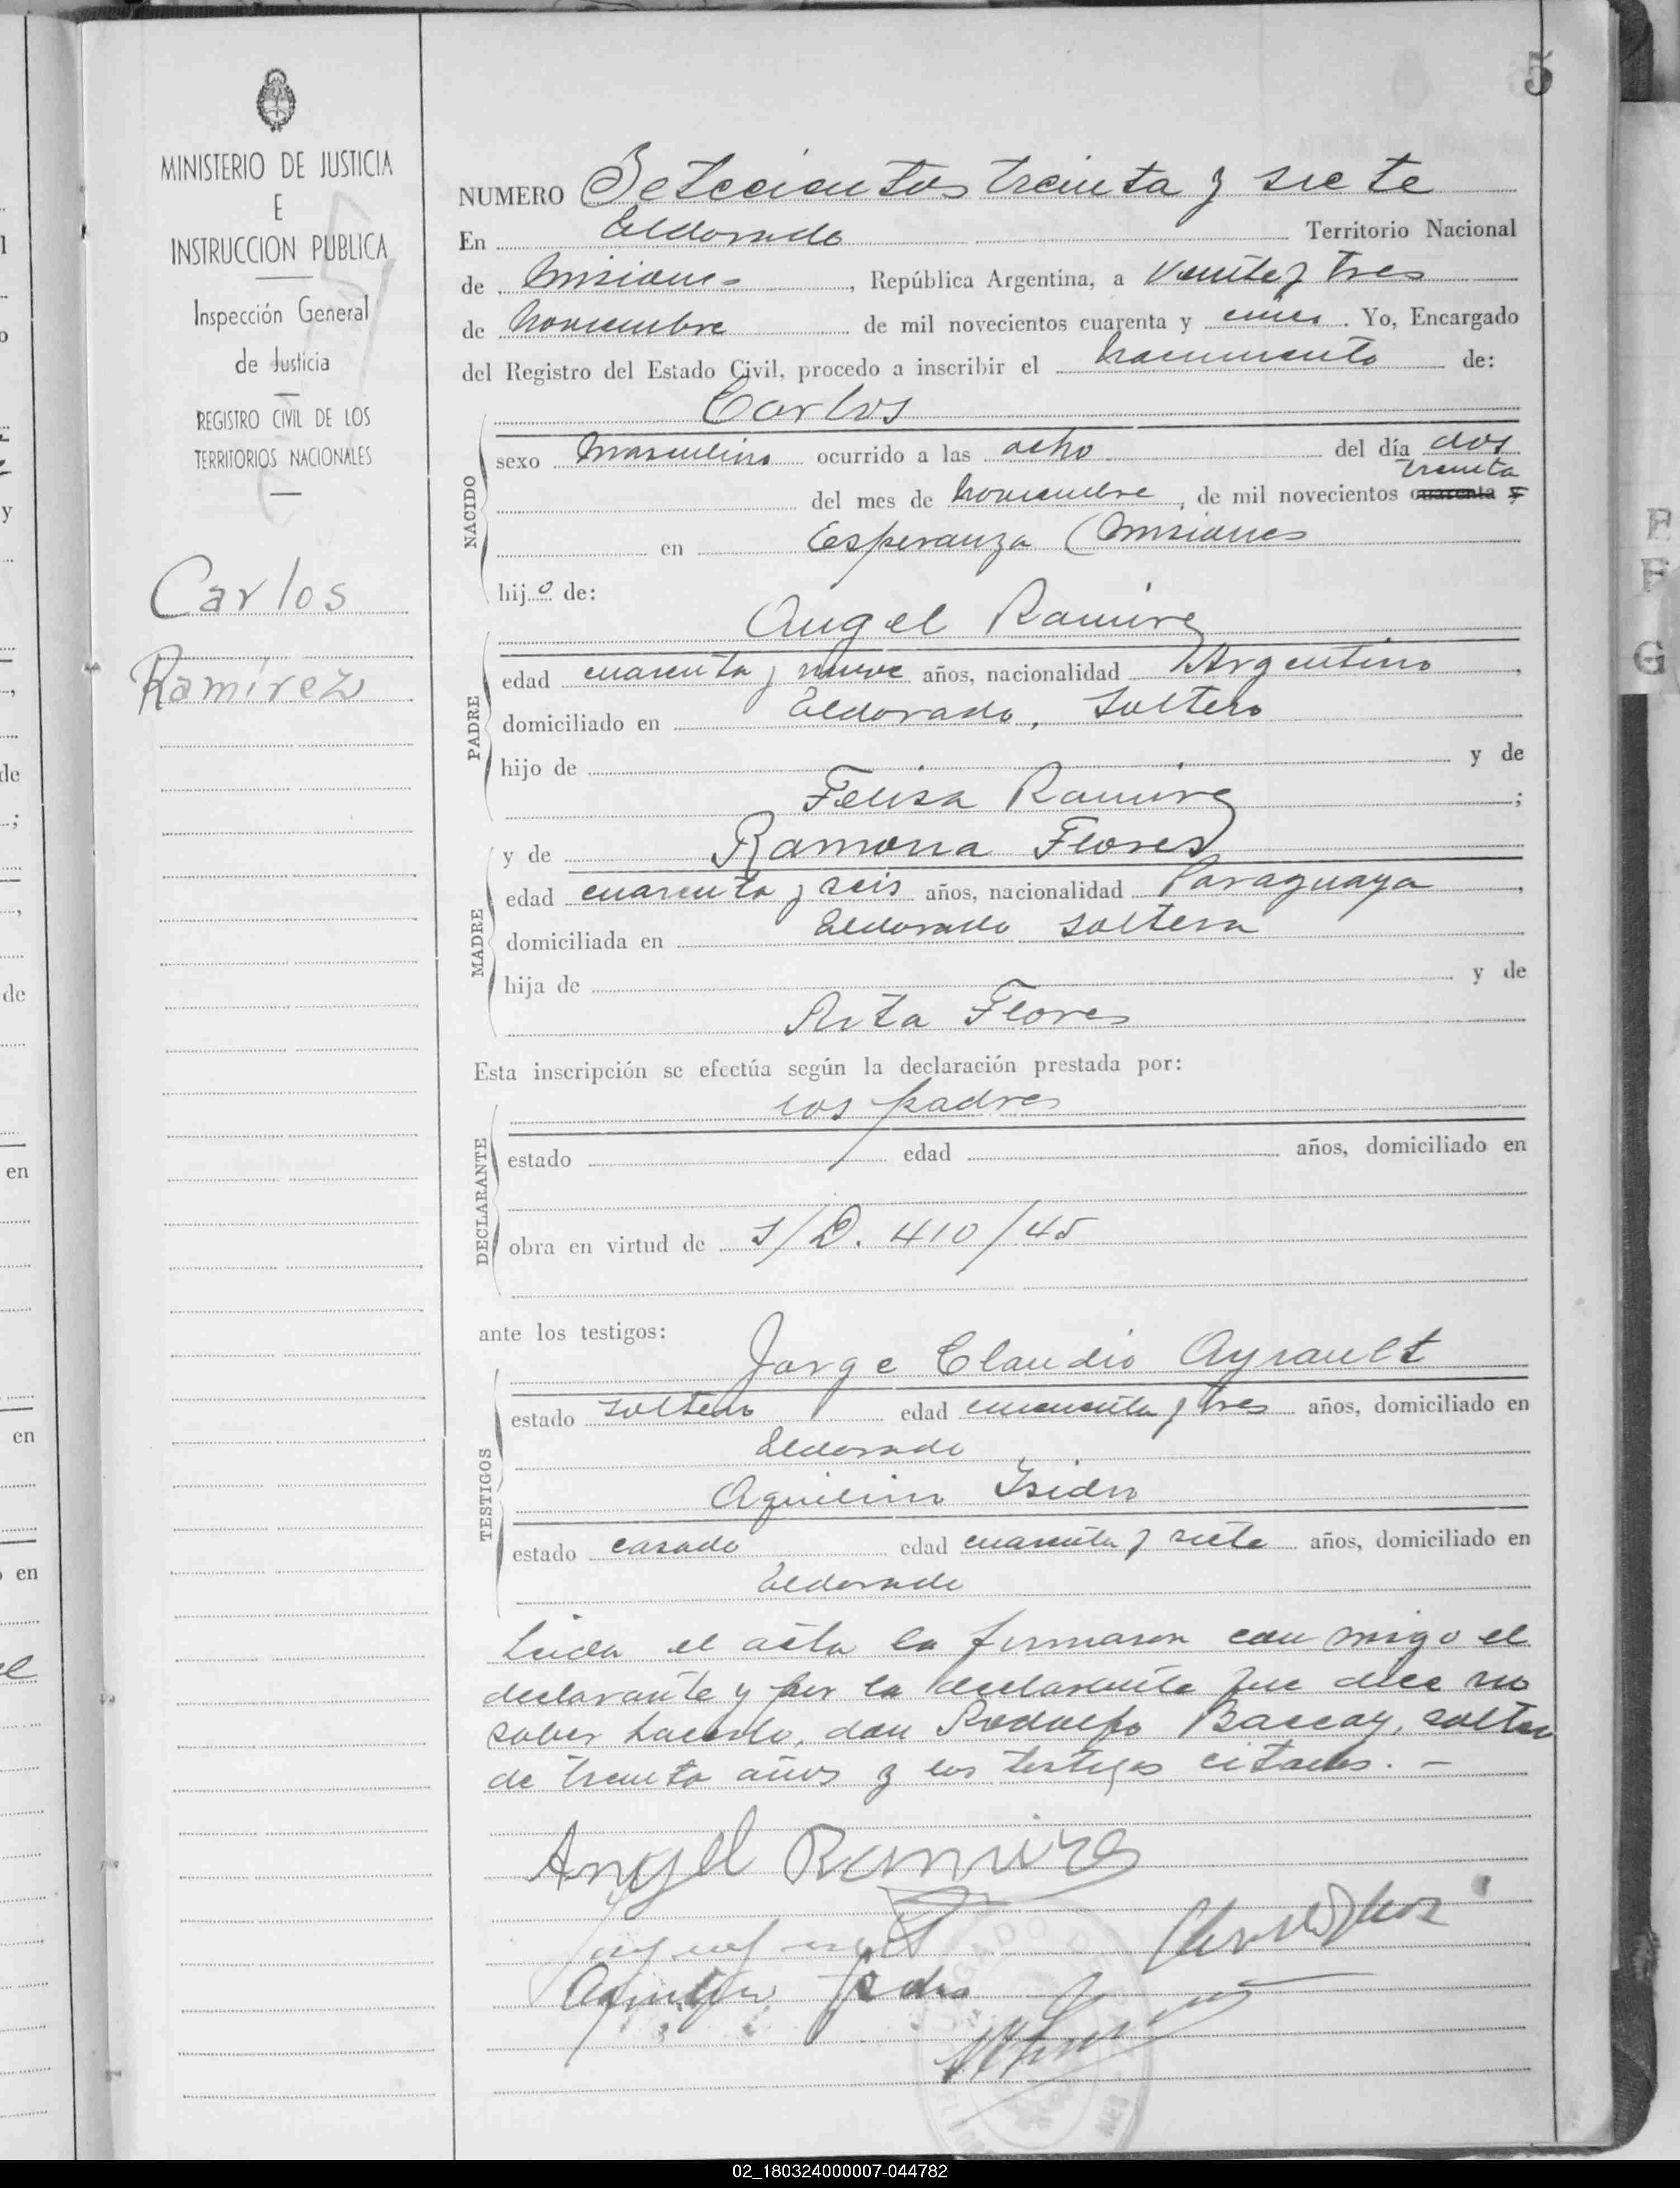 5
MINISTERIO DE JUSTICIA
E
INSTRUCCION PUBLICA
Inspección General
de Justicia
REGISTRO CIVIL DE LOS
TERRITORIOS NACIONALES
Carlos
Ramírez
NUMERO Setecientos treinta y siete
En Eldorado Territorio Nacional
de Misiones, República Argentina, a veinte y tres
de noviembre de mil novecientos cuarenta y cinco. Yo, Encargado
del Registro del Estado Civil, procedo a inscribir el nacimiento de:
Carlos
NACIDO
sexo masculino ocurrido a las ocho del día dos
treinta
del mes de noviembre, de mil novecientos cuarenta y
en Esperanza (Misiones
hijo de:
Angel Ramirez
PADRE
edad cuarenta y nueve años, nacionalidad Argentino,
domiciliado en Eldorado, soltero
hijo de y de
Felisa Ramirez;
y de Ramona Flores
MADRE
edad cuarenta y seis años, nacionalidad Paraguaya,
domiciliada en Eldorado soltera
hija de y de
Rita Flores
Esta inscripción se efectúa según la declaración prestada por:
los padres
DECLARANTE
estado edad años, domiciliado en
obra en virtud de S/D. 410/45
ante los testigos:
Jorge Claudio Ayrault
TESTIGOS
estado soltero edad cincuenta y tres años, domiciliado en
Eldorado
Aquilino Isidro
estado casado edad cuarenta y siete años, domiciliado en
Eldorado
Leida el acta la firmaron con migo el
declarante y por la declarante que dice no
saber hacerlo, don Rodolfo soltero
de treinta años y los testigos citados. –
Angel Ramirez
Aquilino Isidro
02_180324000007-044782